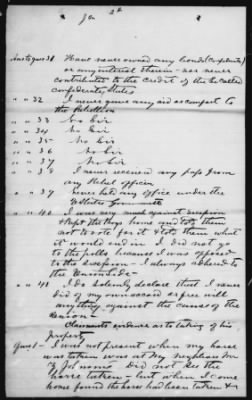 Ans to ques 31 Have never owned any bonds (Confederate)
or any interest therein - nor never
contributed to the credit of the So called
Confederate States
" " 32 I never gave any aid or comfort to
the Rebellion
" " 33 No Sir
" " 34 No Sir
" " 35 No Sir
" " 36 No Sir
" " 37 No Sir
" " 38 I never received any pass from
any Rebel officer
" " 39 never held any office under the
U States Government
" " 40 I was very much against secession
I kept the boys home and told them
not to vote for it & told them what
it would end in I did not go
to the polls because I was opposed
to the Secession - I always adhered to
the Union Side -
" " 41 I do solemnly declare that I never
did of my own accord or free will
anything against the cause of the
Union -
Claimants evidence as to taking of his
property
Ques 1 - I was not present when my horse
was taken was at My neighbors
did not see the
horse taken - but when I came
home found the horse had been taken &